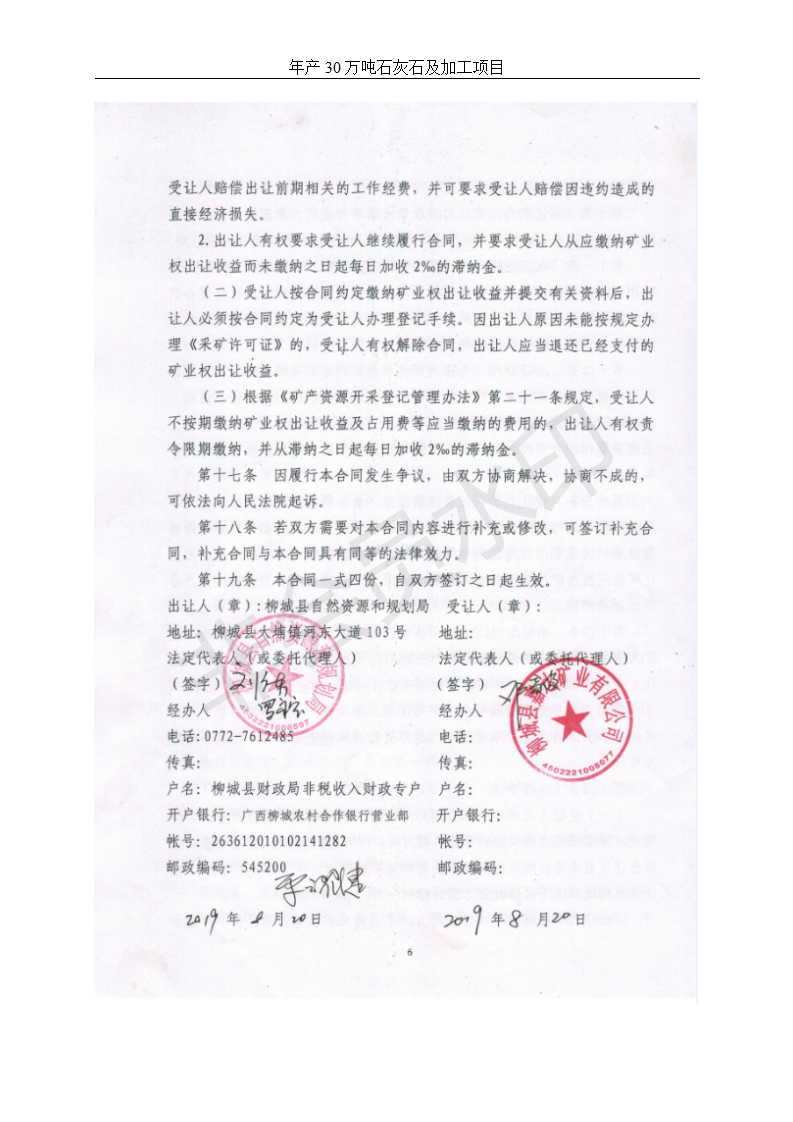 年产 30 万吨石灰石及加工项目
受让人赔偿出让前期相关的工作经费，并可要求受让人赔偿因违约造成的
直接经济损失。
2.出让人有权要求受让人继续履行合同，并要求受让人从应缴纳矿业
权出让收益而未缴纳之日起每日加收 2‰的滞纳金。
（二）受让人按合同约定缴纳矿业权出让收益并提交有关资料后，出
让人必须按合同约定为受让人办理登记手续。因出让人原因未能按规定办
理《采矿许可证》的，受让人有权解除合同，出让人应当退还已经支付的
矿业权出让收益。
（三）根据《矿产资源开采登记管理办法》第二十一条规定，受让人
不按期缴纳矿业权出让收益及占用费等应当缴纳的费用的，出让人有权责
令限期缴纳，并从滞纳之日起每日加收 2‰的滞纳金。
第十七条 因履行本合同发生争议，由双方协商解决，协商不成的，
可依法向人民法院起诉。
第十八条 若双方需要对本合同内容进行补充或修改，可签订补充合
同，补充合同与本合同具有同等的法律效力。
第十九条 本合同一式四份，自双方签订之日起生效。
出让人（章）：柳城县自然资源和规划局 受让人（章）：
地址：柳城县大埔镇河东大道 103 号 地址：
法定代表人（或委托代理人） 法定代表人（或委托代理人）
（签字） （签字）
经办人 经办人
电话：0772-7612485 电话：
传真： 传真：
户名：柳城县财政局非税收入财政专户 户名：
开户银行：广西柳城农村合作银行营业部 开户银行：
帐号：263612010102141282 帐号：
邮政编码：545200 邮政编码：
2019 年 8 月 20 日 2019 年 8 月 20 日
柳城县自然资源和规划局
4502221008597
柳城县 矿业有限公司
4502221008077
6